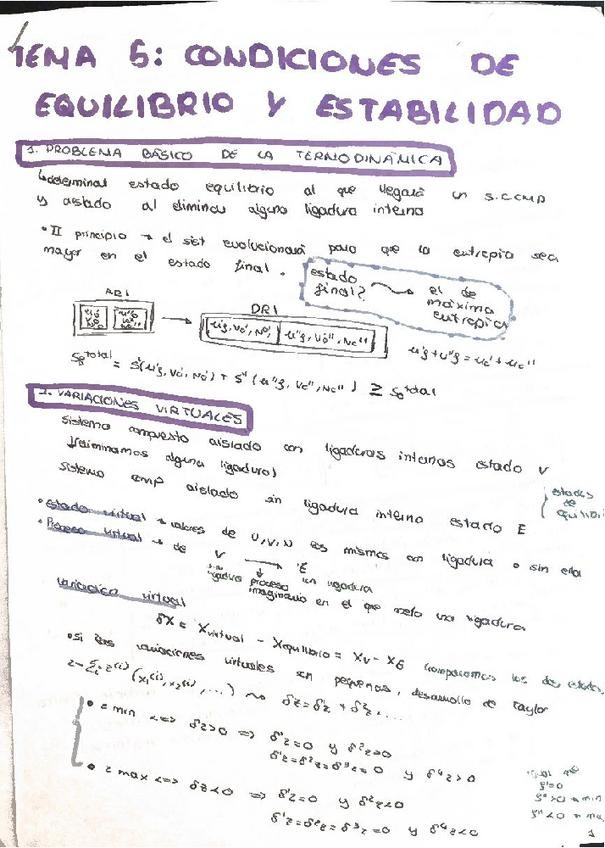 TEMA 5: CONDICIONES DE
EQUILIBRIO Y ESTABILIDAD
1. PROBLEMA BÁSICO DE LA TERMODINÁMICA
↳determinar estado equilibrio al que llegará un s.comp
y aislado al eliminar alguna ligadura interna
• II principio → el sist evolucionará para que la entropía sea
mayor en el estado final.
estado
final?
el de
máxima
entropía
AB1
DR1
2. VARIACIONES VIRTUALES
sistema compuesto aislado con ligaduras internas estado V
↓(eliminamos alguna ligadura)
sistema comp aislado sin ligadura interna estado E
estados
de
• Estado virtual → valores de U, V, N los mismos con ligadura o sin ella
• Proceso virtual → de V → E
sin ligadura
proceso
con ligadura
imaginario en el que meto una ligadura
variación virtual
δX = Xvirtual - Xequilibrio = Xv - XE (comparamos los dos estados)
• si las variaciones virtuales son pequeñas, desarrollo de taylor
• z min <=> δz>0 => δ'z=0 y δ²z>0
δ'z=δ²z=δ³z=0 y δ⁴z>0
• z max <=> δz<0 => δ'z=0 y δ²z<0
δ'z=δ²z=δ³z=0 y δ⁴z<0
1